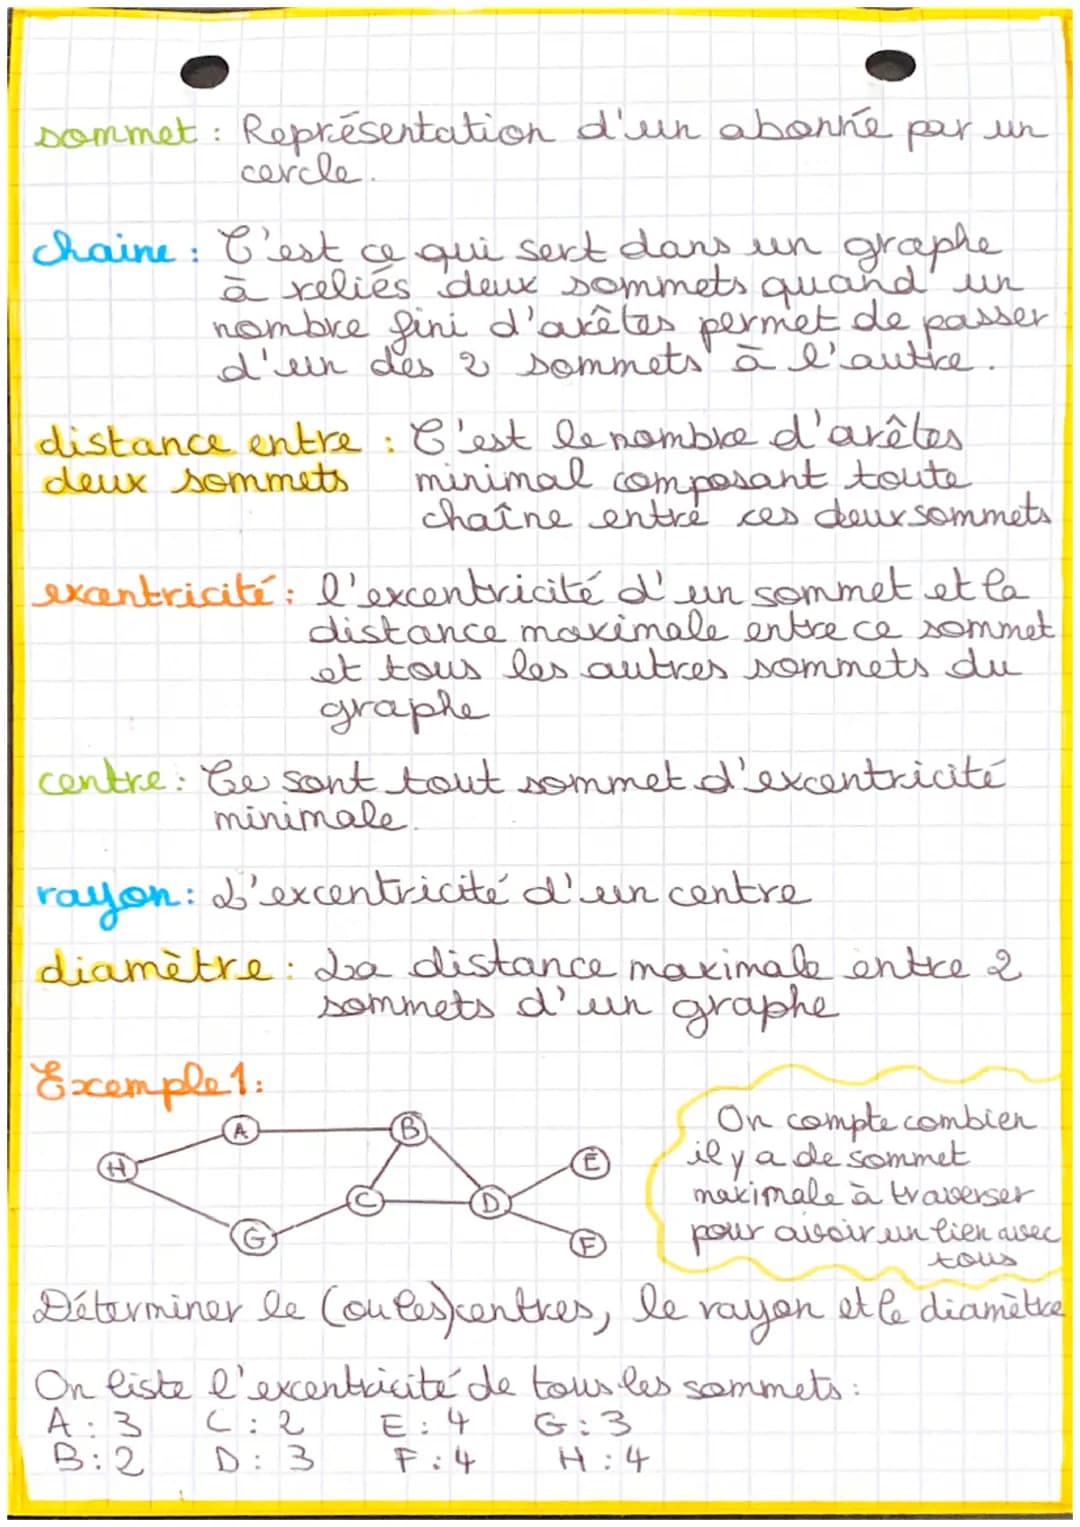 sommet : Représentation d'un abonné par un
cercle.
chaine : C'est ce qui sert dans un graphe
à reliés deux sommets quand un
nombre fini d'arêtes permet de passer
d'un des 2 sommets à l'autre.
distance entre : C'est le nombre d'arêtes
deux sommets minimal composant toute
chaîne entre ces deux sommets
excentricité : l'excentricité d'un sommet et la
distance maximale entre ce sommet
et tous les autres sommets du
graphe
centre : Ce sont tout sommet d'excentricité
minimale.
rayon : L'excentricité d'un centre
diamètre : La distance maximale entre 2
sommets d'un graphe
Exemple 1:
A
B
H
E
C
D
G
F
On compte combien
il y a de sommet
maximale à traverser
pour avoir un lien avec
tous
Déterminer le (ou les) centres, le rayon et le diamètre
On liste l'excentricité de tous les sommets :
A : 3 C : 2 E : 4 G : 3
B : 2 D : 3 F : 4 H : 4